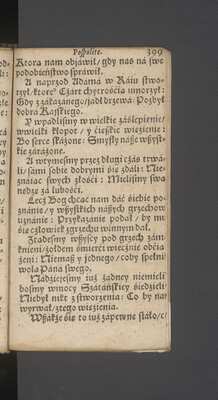 Pospolite. 309
Ktora nam objáwił/ gdy nas ná swe
podobieństwo spráwił.
A naprzod Adámá w Ráiu stwo-
rzył/ ktore° Czárt chytrośćią umorzył:
Gdy z zákázánego/ jadł drzewá: Pozbył
dobrá Ráyskiego.
Y wpádlismy w wielkie záślepienie/
wwielki kłopot/ y ćięskie więzienie:
Bo serce skáżone: Smysły násze wszyst-
kie záráżone.
A wtymesmy przez długi czás trwá-
li/ sámi sobie dobrymi się zdáli: Nie-
znáiąc swych złośći: Mielismy swą
nędzę zá lubośći.
Lecz Bog chcąc nam dáć sobie po-
znánie/ y wszystkich nászych grzechow
uznánie: Przykazánie podał/ by mu
się człowiek zgrzechu winnym dał.
Ztądesmy wszyscy pod grzech zám-
knieni/ żołdem śmierći wiecznie obćią-
żeni: Niemász y jednego/ coby spełnił
wolą Páná swego.
Nádzieiesmy iuż żadney niemieli
bosmy wmocy Szátáńskiey siedzieli
Niebył nikt z stworzenia: Co by nas
wyrwał/ z tego więzienia.
Wszákże się to iuż zápewne stáło/